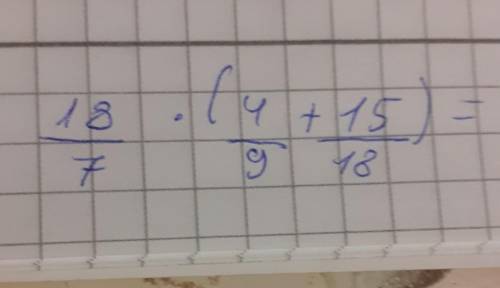 18/7 · (4/9 + 15/18) =